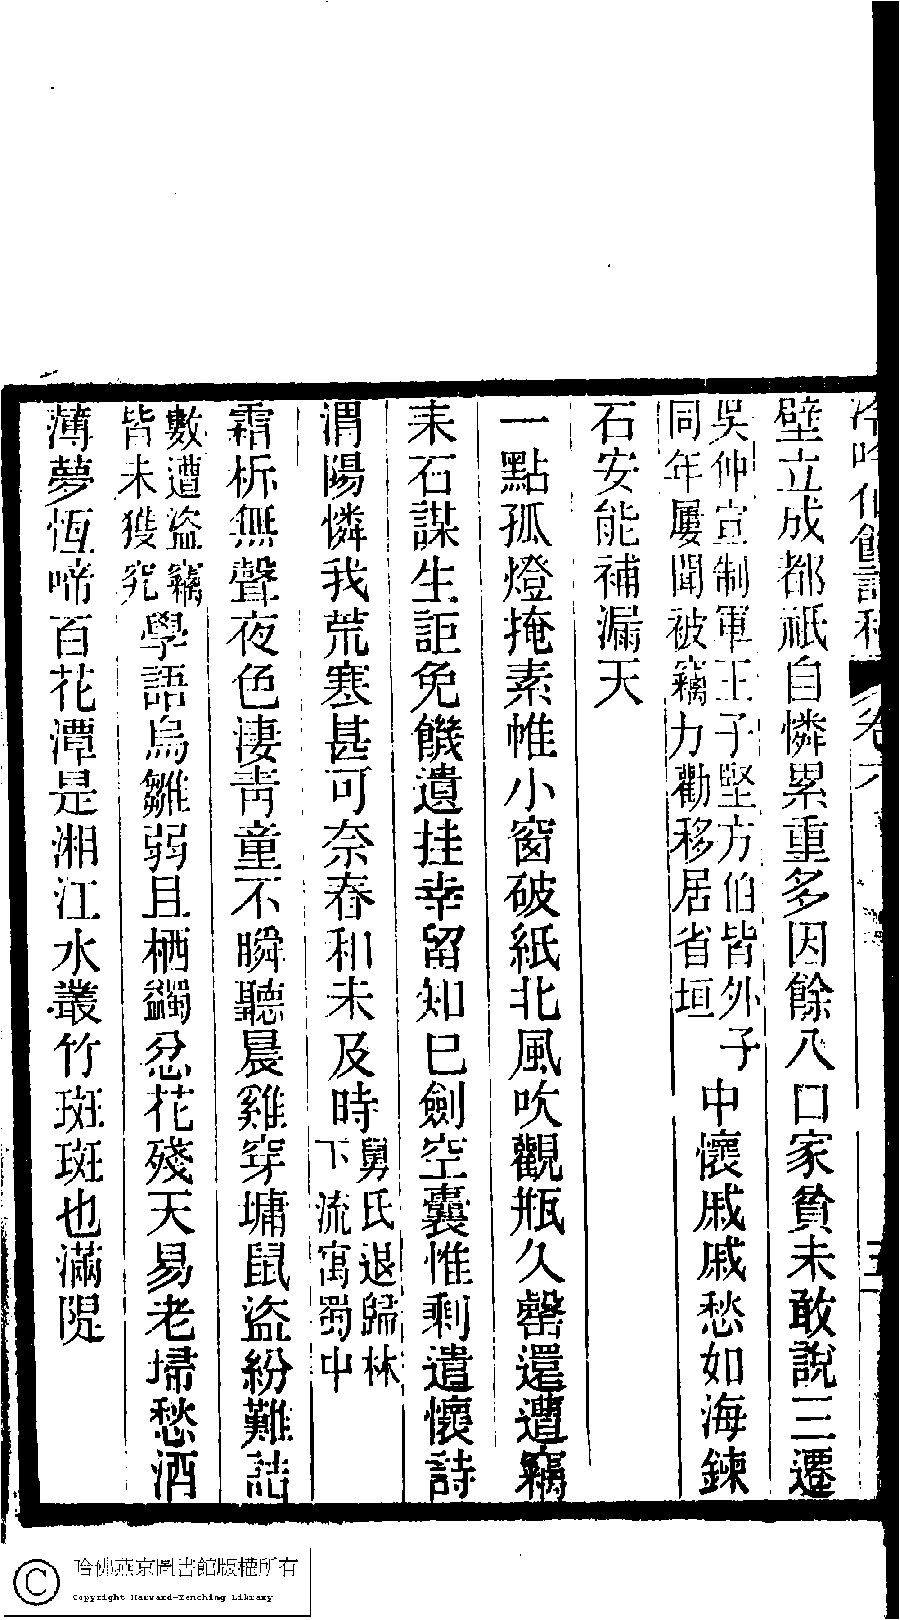 冷吟仙館詩稿 卷六 五
壁立成都祇自憐累重多因餘八口家貧未敢說三遷
吳仲宣制軍王子堅方伯皆外子
同年屢聞被竊力勸移居省垣
中懷戚戚愁如海鍊
石安能補漏天
一點孤燈掩素帷小窗破紙北風吹觀瓶久罄還遭竊
耒石謀生詎免饑遺挂幸留知已劍空囊惟剩遣懷詩
渭陽憐我荒寒甚可奈春和未及時
舅氏退歸林
下流寓蜀中
霜柝無聲夜色淒青童不瞬聽晨雞穿墉鼠盜紛難詰
數遭盜竊
皆未獲究
學語烏雛弱且栖蠲忿花殘天易老埽愁酒
薄夢恆啼百花潭是湘江水叢竹斑斑也滿隄
哈佛燕京圖書館版權所有
Copyright Harvard-Yenching Library